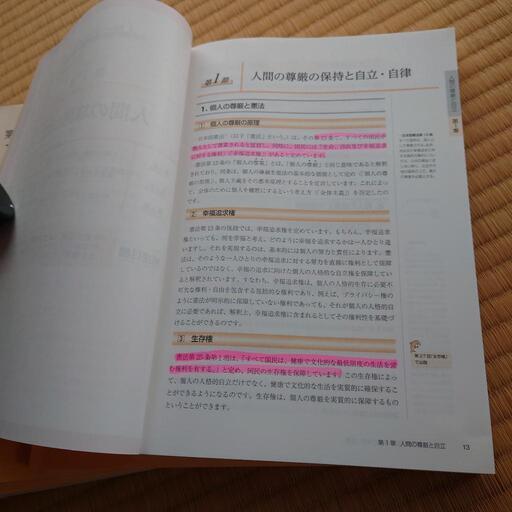 第1節 人間の尊厳の保持と自立・自律
1. 個人の尊厳と憲法
① 個人の尊厳の原理
日本国憲法(以下「憲法」という。)は、その第13条で、すべての国民が
個人として尊重されることを宣言し、同時に、国民には「生命、自由及び幸福追求
に対する権利」(「幸福追求権」)があると定めています。
憲法第13条の「個人の尊重」とは、「個人の尊厳」と同じ意味であると解釈
されており、同条は、個人の尊厳を憲法の基本的な価値として定め(「個人の尊
厳の原理」)、個人主義をその基本原理とすることを宣言しています。これによっ
て、全体のために個人を犠牲にするという考え方(「全体主義」)を否定したの
です。
② 幸福追求権
憲法第13条の後段では、幸福追求権を定めています。もちろん、幸福追求
権といっても、何を幸福と考え、どのように幸福を追求するかは一人ひとり違
いますし、それを実現するのは、基本的には個人の努力と責任によります。憲
法は、そのような一人ひとりの幸福追求に対する努力を直接に権利として保障し
ているのではなく、幸福の追求に向けた個人の人格的な自立権を保障している
と解釈されています。すなわち、幸福追求権は、個人の人格的生存に必要不
可欠な権利・自由を包含する包括的な権利であり、例えば、プライバシー権の
ように憲法が明示的に保障していない権利であっても、それが個人の人格的自
立に必要であれば、解釈上、幸福追求権に含まれるとしてその権利性を基礎づ
けることができるのです。
③ 生存権
憲法第25条第1項は、「すべて国民は、健康で文化的な最低限度の生活を営
む権利を有する。」と定め、国民の生存権を保障しています。この生存権によっ
て、個人の人格的自立だけでなく、健康で文化的な生活を実質的に確保するこ
とができるようになるのです。生存権は、個人の尊厳を実質的に保障するもの
ということができます。
人間の尊厳と自立
第1章
第1章 人間の尊厳と自立 13